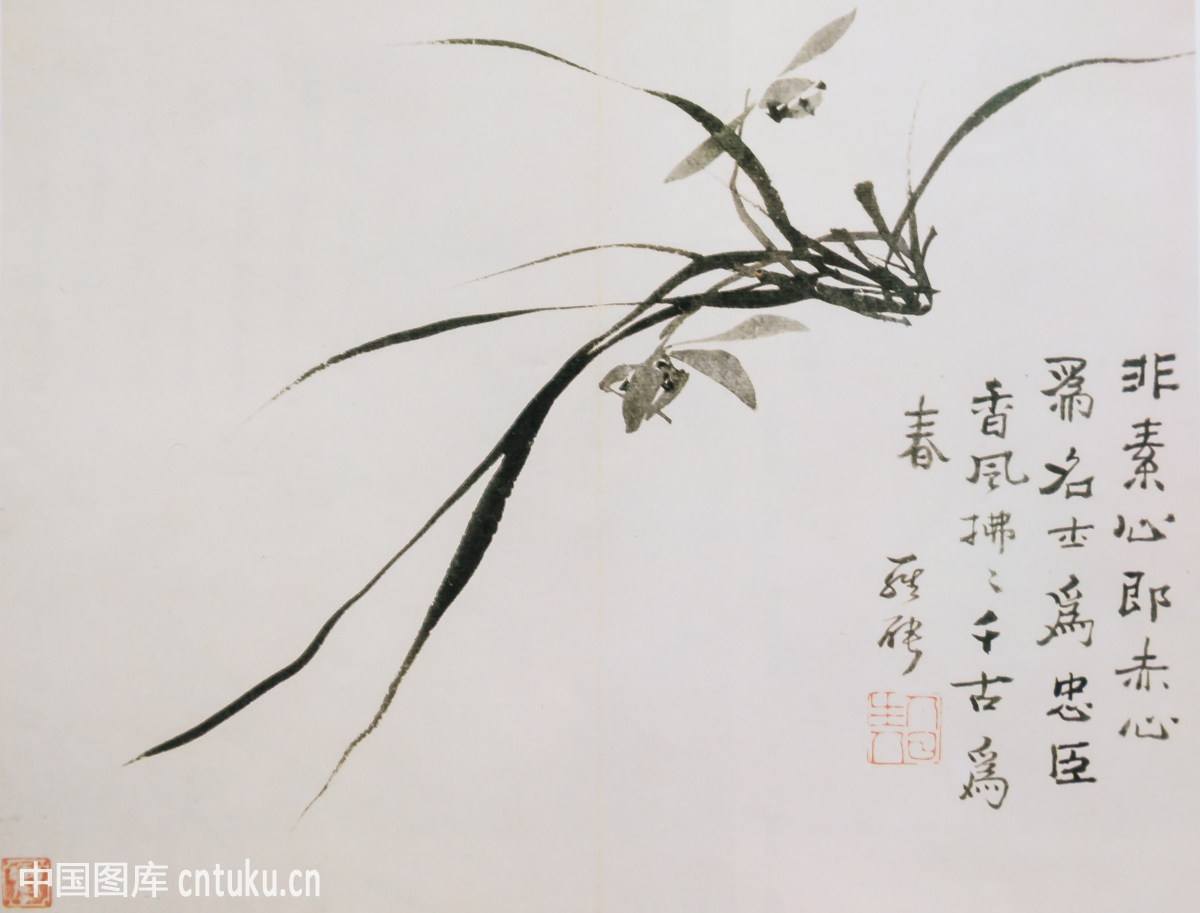 非素心即赤心
為名士爲忠臣
香風拂〻千古爲
春
中国图库 cntuku.cn